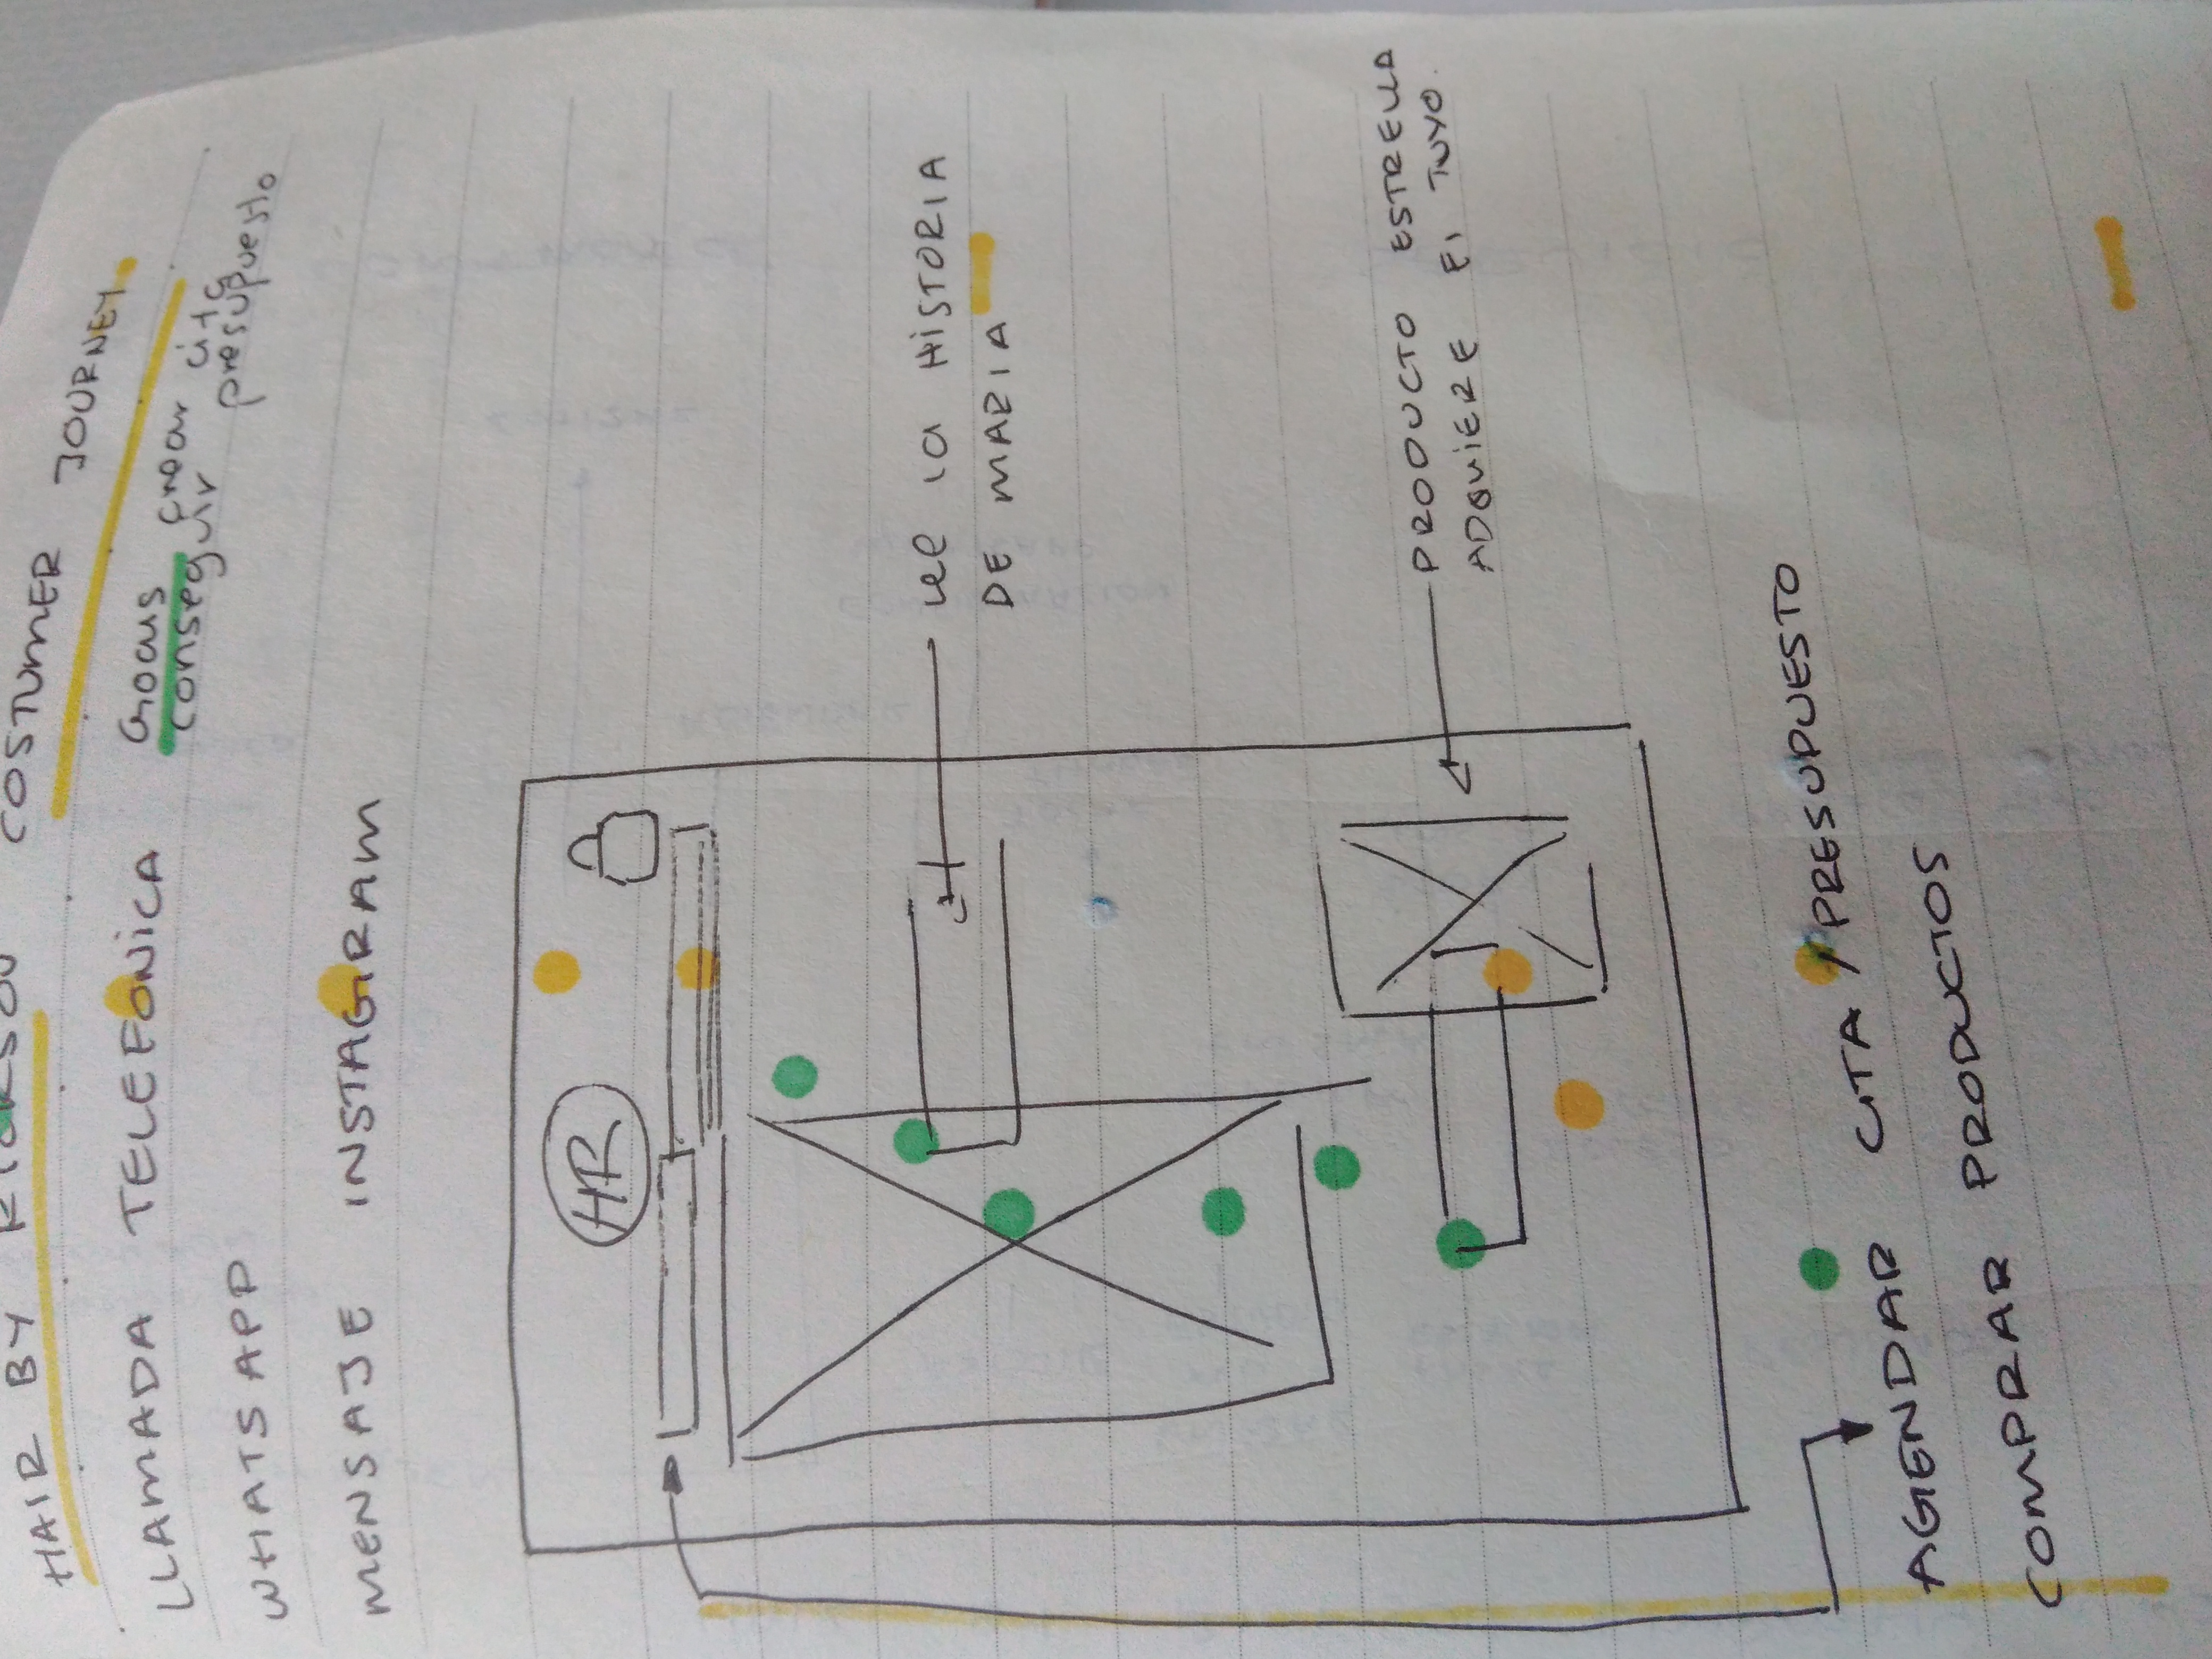 HAIR BY RICKSON COSTUMER JOURNEY
LLAMADA TELEFONICA
Goals crear cita
conseguir presupuesto
WHATSAPP
MENSAJE INSTAGRAM
HR
LEE LA HISTORIA
DE MARIA
PRODUCTO ESTRELLA
ADQUIERE El TUYO.
AGENDAR CITA / PRESUPUESTO
COMPRAR PRODUCTOS